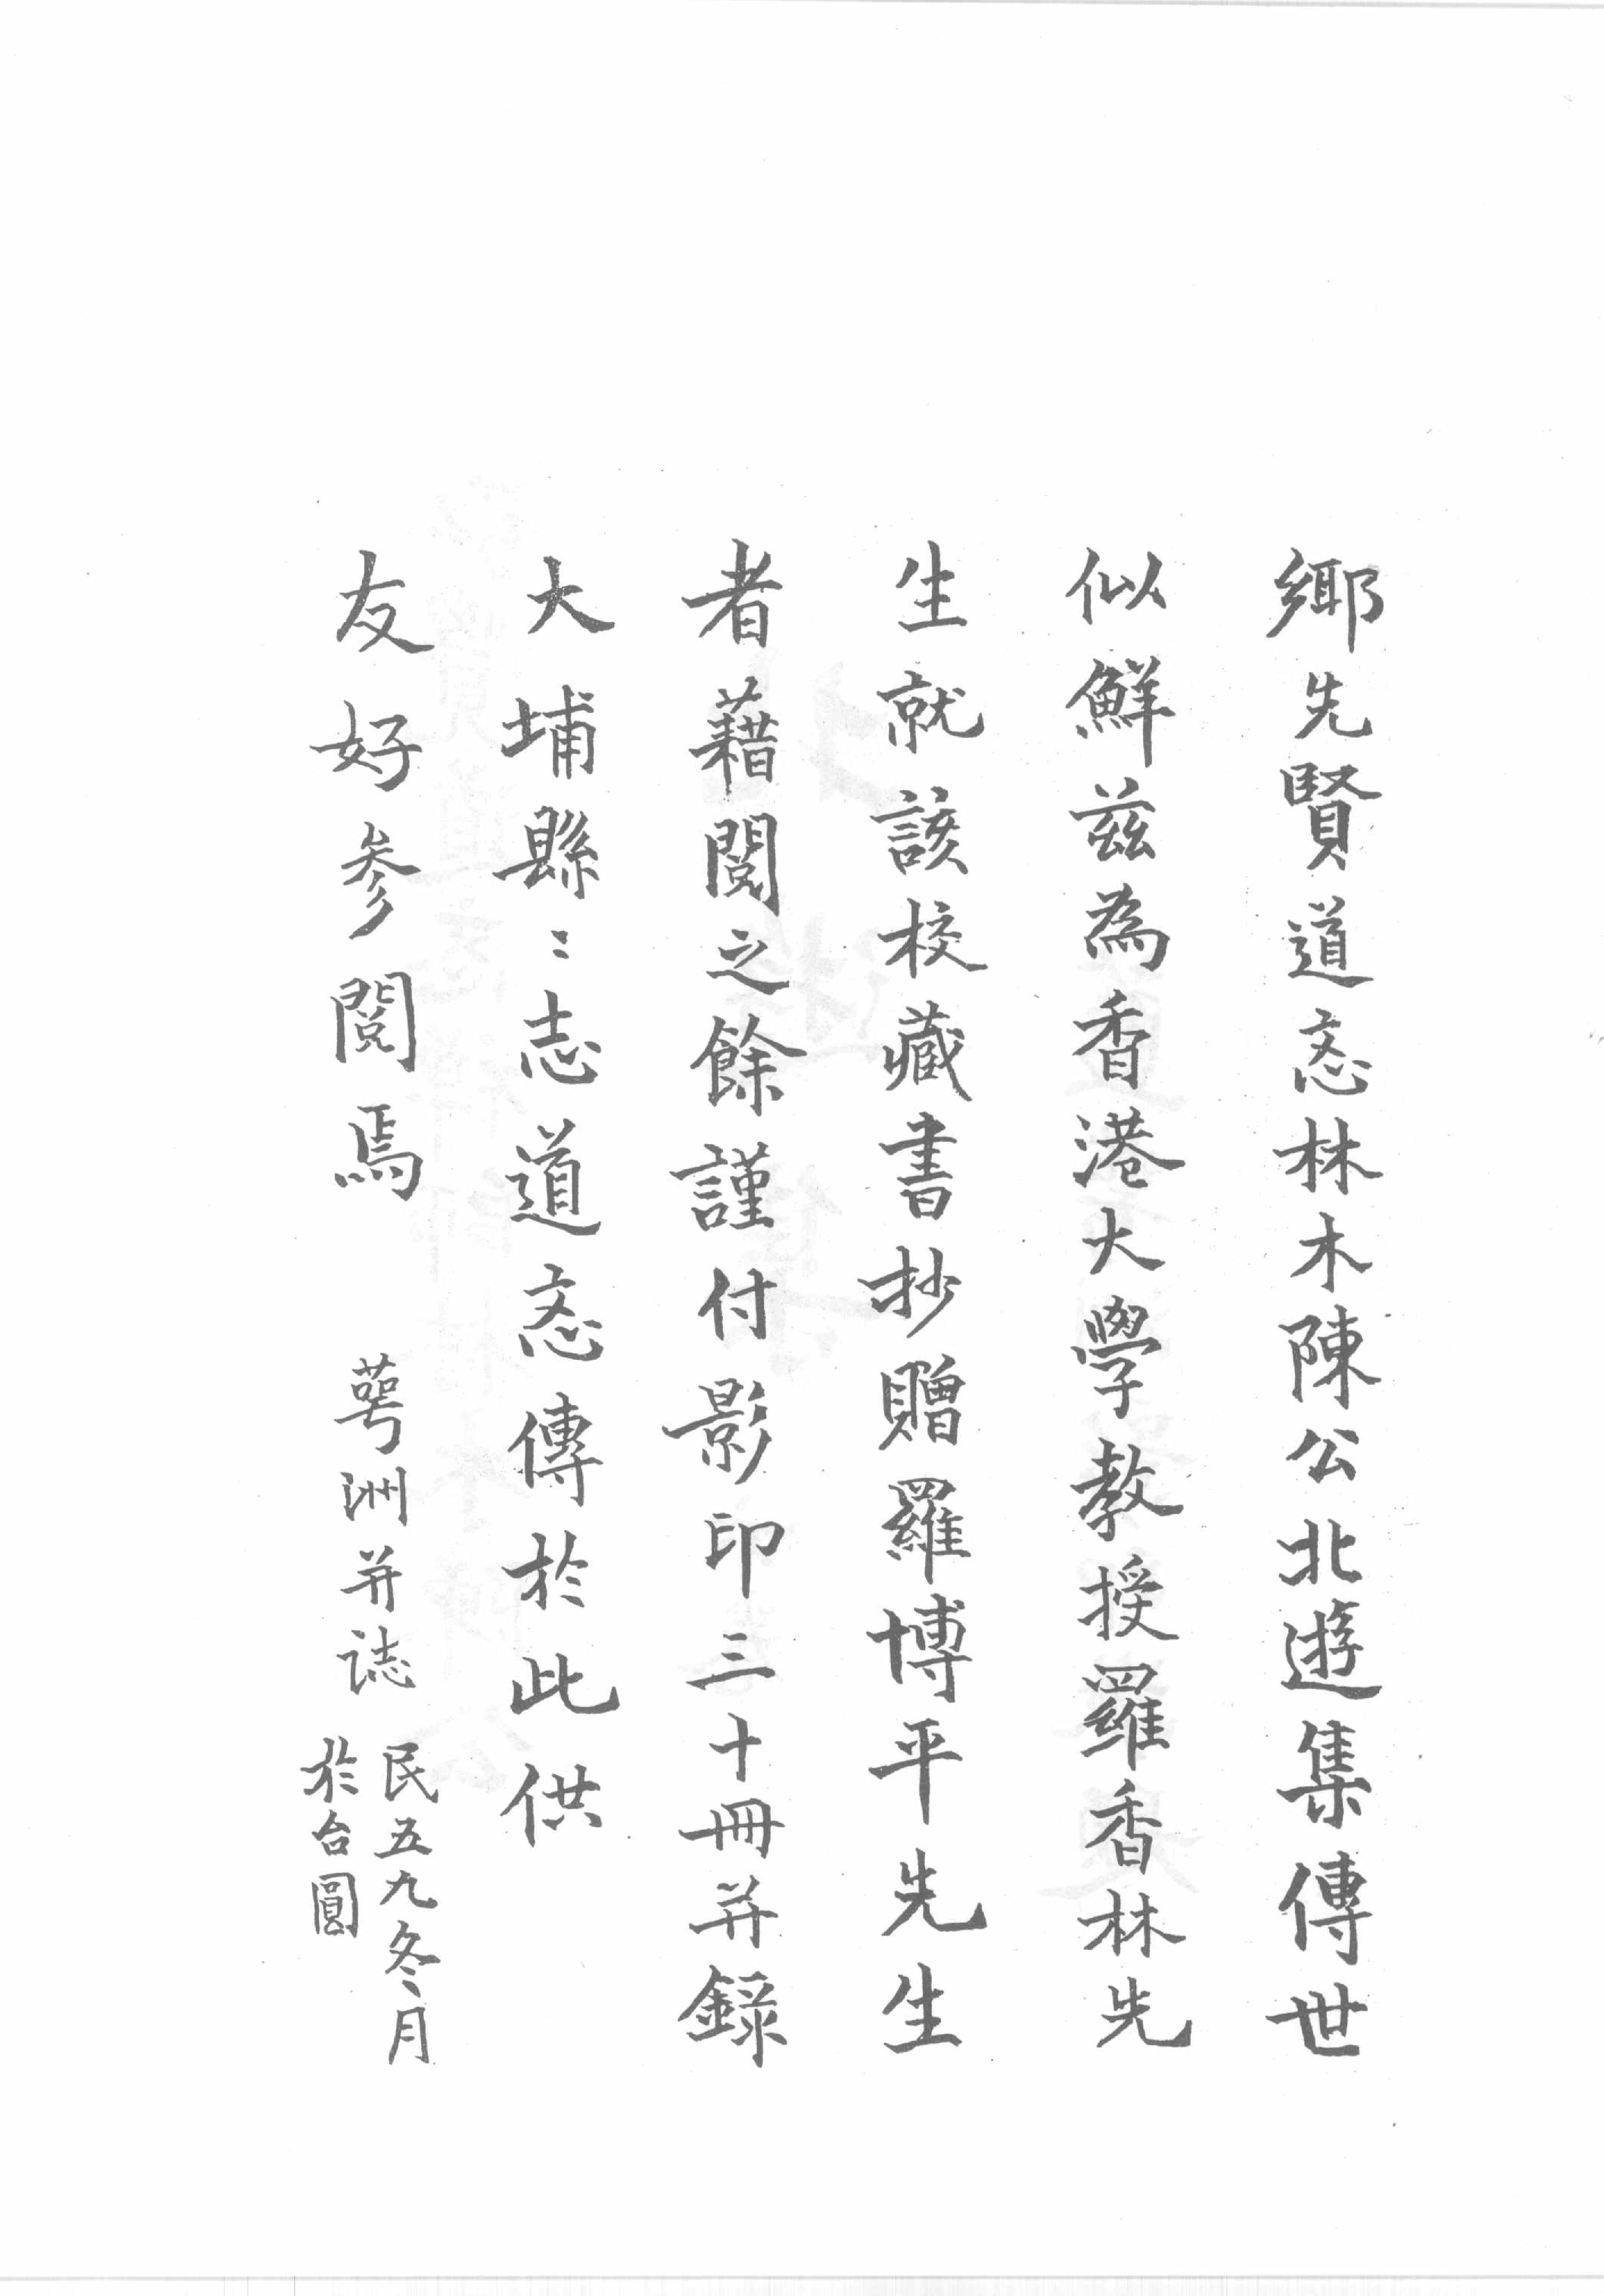 鄉先賢道忞林木陳公北遊集傳世
似鮮茲為香港大學教授羅香林先
生就該校藏書抄贈羅博平先生
者藉閱之餘謹付影印三十冊并錄
大埔縣〻志道忞傳於此供
友好參閱焉 萼洲并誌
民五九冬月
於台圓